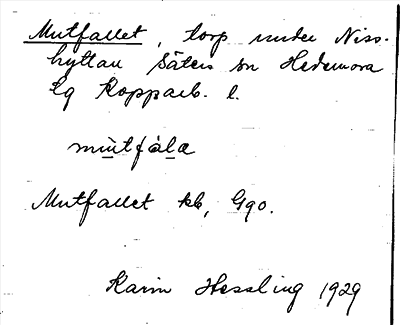 Mutfallet, torp under Niss-
hyttan Säters sn Hedemora
tg Kopparb. l.
mùtfàla
Mutfallet kb, Gqo.
Karin Hessling 1929